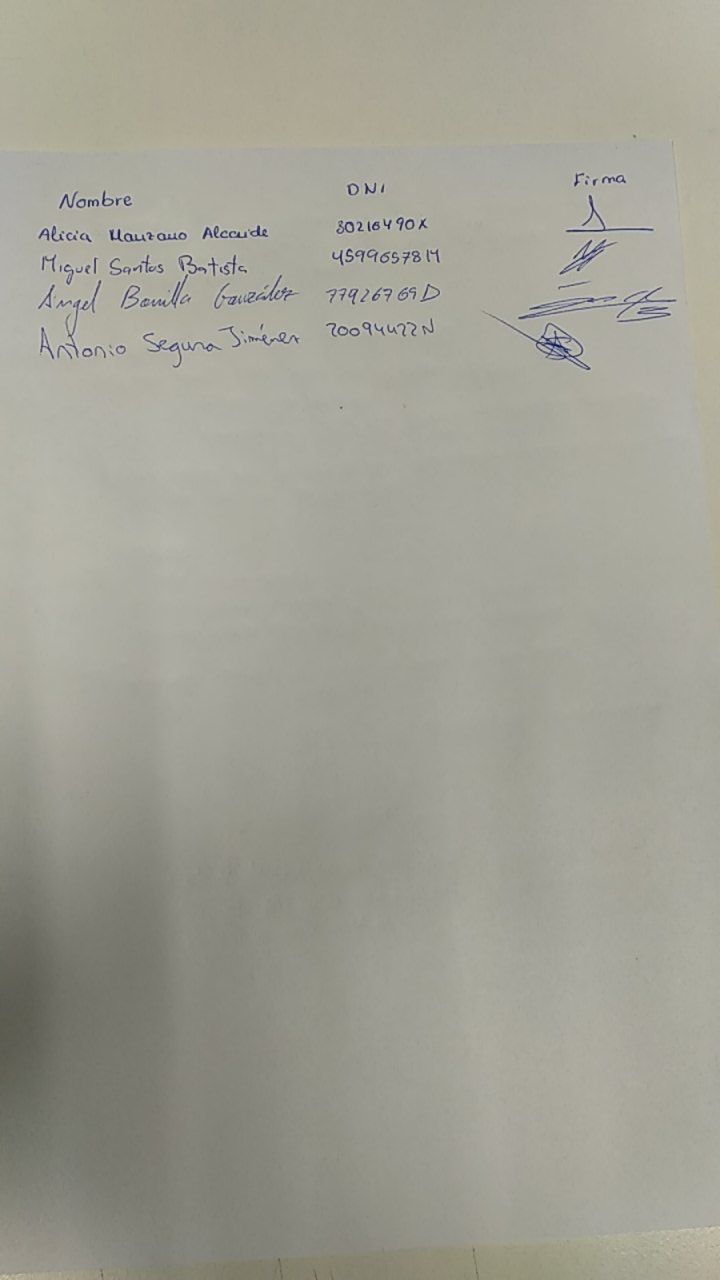 Nombre DNI Firma
Alicia Manzano Alcaide 30216490X
Miguel Santos Batista 45996578M
Ángel Bonilla González 77926769D
Antonio Segura Jiménez 20094422N